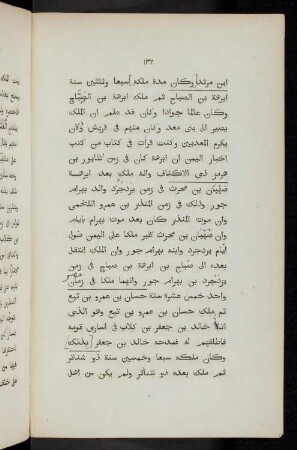 ١٣٢
ابن مرثد] وكان مدة ملكه] سبعا وثلثين سنة
ابرهة بن الصباح ثم ملك ابرهة بن الصباح
وكان عالما جوادا وكان قد علم ان الملك
يصير الى بنى معد وكان منهم فى قريش ولان
يكرم المعديين وقد قرات فى كتاب من كتب
اخبار اليمن ان ابرهة كان فى زمن شابور بن
هرمز ذى الاكتاف وانه ملك بعد ابرهة
صهبان بن محرث فى زمن يزدجرد والد بهرام
جور وذلك فى زمن المنذر بن عمرو اللخمى
وان موت المنذر كان بعد موت بهرام بايام
وان صهبان بن محرث غبر ملكا على اليمن طول
ايام يزدجرد وابنه بهرام جور وان الملك انتقل
بعده الى صباح بن ابرهة بن صباح فى زمن
يزدجرد بن بهرام جور وانهما ملكا فى زمان
واحد خمس عشرة سنة حسان بن عمرو بن تبع
ثم ملك حسان بن عمرو بن تبع وهو الذى
اتاه خالد بن جعفر بن كلاب فى اسارى قومه
فاطلقهم له فمدحه خالد بن جعفر [بذلك]
وكان ملكه سبعا وخمسين سنة ذو شناتر
ثم ملك بعده ذو شناتر ولم يكن من اهل